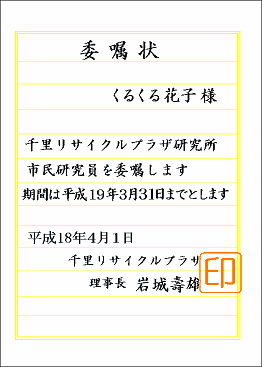 委嘱状
くるくる花子様
千里リサイクルプラザ研究所
市民研究員を委嘱します
期間は平成19年3月31日までとします
平成18年4月1日
千里リサイクルプラザ
理事長 岩城壽雄
印